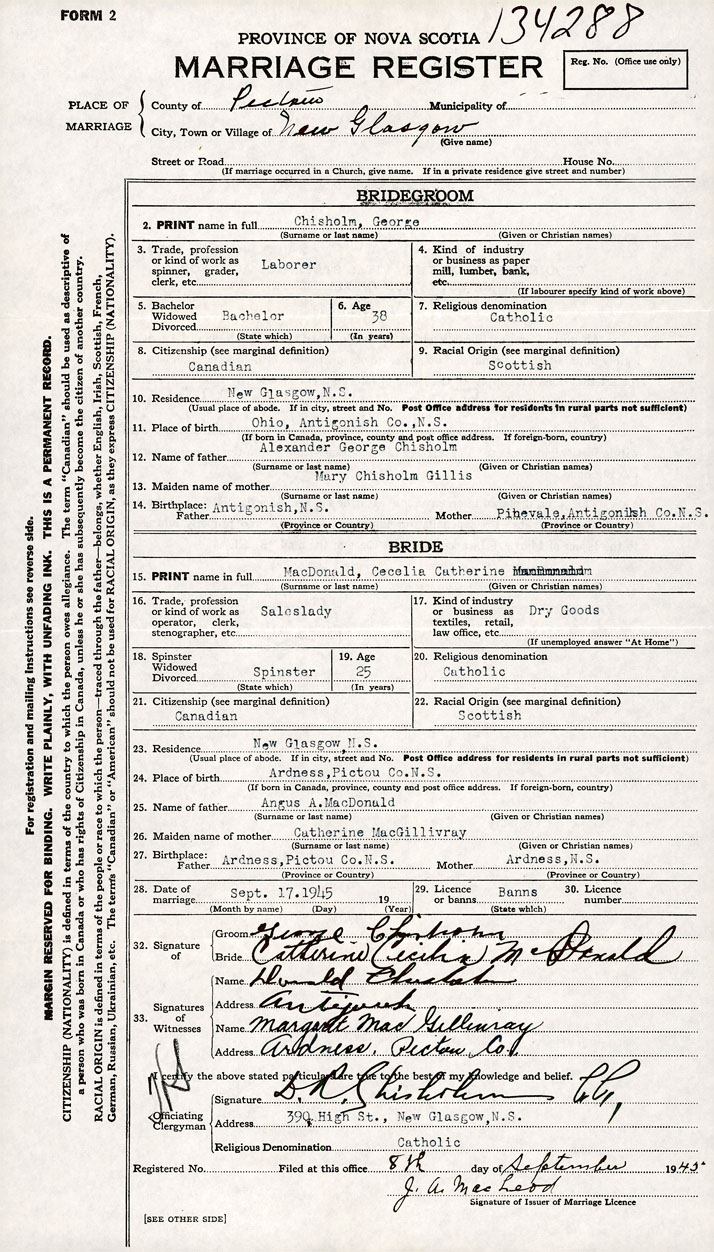 FORM 2
134288
PROVINCE OF NOVA SCOTIA
MARRIAGE REGISTER
Reg. No. (Office use only)
PLACE OF MARRIAGE
County of Pictou Municipality of
City, Town or Village of New Glasgow
(Give name)
Street or Road House No.
(If marriage occurred in a Church, give name. If in a private residence give street and number)
BRIDEGROOM
2. PRINT name in full Chisholm, George
(Surname or last name) (Given or Christian names)
3. Trade, profession or kind of work as spinner, grader, clerk, etc. Laborer
4. Kind of industry or business as paper mill, lumber, bank, etc.
(If labourer specify kind of work above)
5. Bachelor Widowed Divorced Bachelor
(State which)
6. Age 38
(In years)
7. Religious denomination
Catholic
8. Citizenship (see marginal definition)
Canadian
9. Racial Origin (see marginal definition)
Scottish
10. Residence New Glasgow,N.S.
(Usual place of abode. If in city, street and No. Post Office address for residents in rural parts not sufficient)
11. Place of birth Ohio, Antigonish Co.,N.S.
(If born in Canada, province, county and post office address. If foreign-born, country)
12. Name of father Alexander George Chisholm
(Surname or last name) (Given or Christian names)
13. Maiden name of mother Mary Chisholm Gillis
(Surname or last name) (Given or Christian names)
14. Birthplace: Father Antigonish,N.S. Mother Pinevale,Antigonish Co.N.S.
(Province or Country) (Province or Country)
BRIDE
15. PRINT name in full MacDonald, Cecelia Catherine
(Surname or last name) (Given or Christian names)
16. Trade, profession or kind of work as operator, clerk, stenographer, etc. Saleslady
17. Kind of industry or business as textiles, retail, law office, etc. Dry Goods
(If unemployed answer "At Home")
18. Spinster Widowed Divorced Spinster
(State which)
19. Age 25
(In years)
20. Religious denomination
Catholic
21. Citizenship (see marginal definition)
Canadian
22. Racial Origin (see marginal definition)
Scottish
23. Residence New Glasgow,N.S.
(Usual place of abode. If in city, street and No. Post Office address for residents in rural parts not sufficient)
24. Place of birth Ardness,Pictou Co.N.S.
(If born in Canada, province, county and post office address. If foreign-born, country)
25. Name of father Angus A.MacDonald
(Surname or last name) (Given or Christian names)
26. Maiden name of mother Catherine MacGillivray
(Surname or last name) (Given or Christian names)
27. Birthplace: Father Ardness,Pictou Co.N.S. Mother Ardness,N.S.
(Province or Country) (Province or Country)
28. Date of marriage Sept. 17.1945 19
(Month by name) (Day) (Year)
29. Licence or banns Banns
(State which)
30. Licence number
32. Signature of
Groom George Chisholm
Bride Catherine Cecilia McDonald
33. Signatures of Witnesses
Name Donald Chisholm
Address Antigonish
Name Margaret Mac Gillivray
Address Ardness, Pictou Co.
I certify the above stated particulars are true to the best of my knowledge and belief.
Officiating Clergyman
Signature D. R. Chisholm P.P.,
Address 390 High St., New Glasgow,N.S.
Religious Denomination Catholic
Registered No. Filed at this office 8th day of September 1945
J. A. MacLeod
Signature of Issuer of Marriage Licence
[SEE OTHER SIDE]
For registration and mailing instructions see reverse side.
MARGIN RESERVED FOR BINDING. WRITE PLAINLY, WITH UNFADING INK. THIS IS A PERMANENT RECORD.
CITIZENSHIP (NATIONALITY) is defined in terms of the country to which the person owes allegiance. The term "Canadian" should be used as descriptive of
a person who was born in Canada or who has rights of Citizenship in Canada, unless he or she has subsequently become the citizen of another country.
RACIAL ORIGIN is defined in terms of the people or race to which the person—traced through the father—belongs, whether English, Irish, Scottish, French,
German, Russian, Ukrainian, etc. The terms "Canadian" or "American" should not be used for RACIAL ORIGIN, as they express CITIZENSHIP (NATIONALITY).